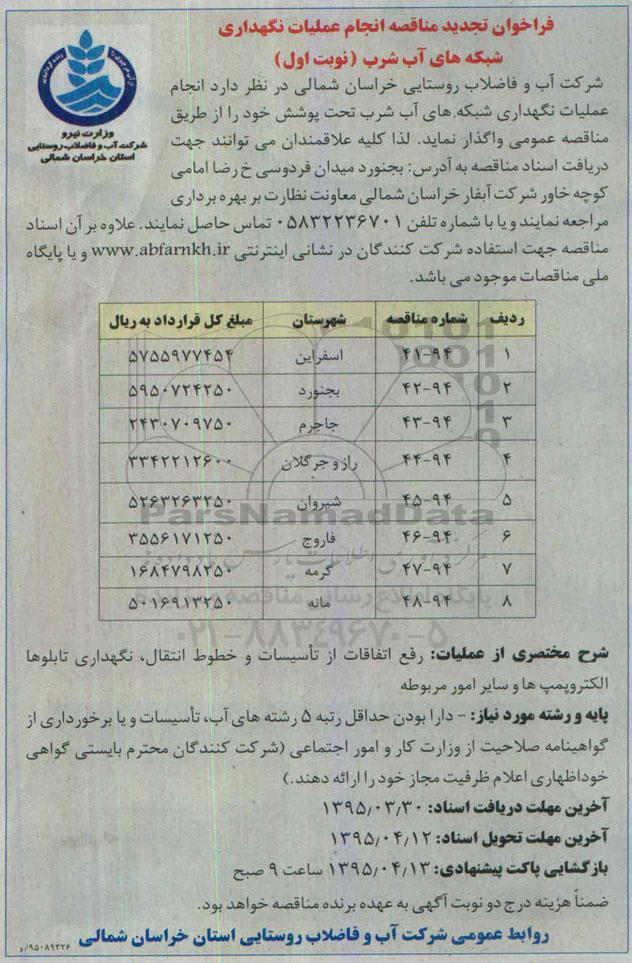 فراخوان تجدید مناقصه انجام عملیات نگهداری
شبکه های آب شرب (نوبت اول)
وزارت نیرو
شرکت آب و فاضلاب روستایی
استان خراسان شمالی
شرکت آب و فاضلاب روستایی خراسان شمالی در نظر دارد انجام
عملیات نگهداری شبکه های آب شرب تحت پوشش خود را از طریق
مناقصه عمومی واگذار نماید. لذا کلیه علاقمندان می توانند جهت
دریافت اسناد مناقصه به آدرس: بجنورد میدان فردوسی خ رضا امامی
کوچه خاور شرکت آبفار خراسان شمالی معاونت نظارت بر بهره برداری
مراجعه نمایند و یا با شماره تلفن ۰۵۸۳۲۲۳۶۷۰۱ تماس حاصل نمایند. علاوه بر آن اسناد
مناقصه جهت استفاده شرکت کنندگان در نشانی اینترنتی www.abfarnkh.ir و یا پایگاه
ملی مناقصات موجود می باشد.
ردیف شماره مناقصه شهرستان مبلغ کل قرارداد به ریال
۱ ۴۱-۹۴ اسفراین ۵۷۵۵۹۷۷۴۵۴
۲ ۴۲-۹۴ بجنورد ۵۹۵۰۷۲۴۲۵۰
۳ ۴۳-۹۴ جاجرم ۲۴۳۰۷۰۹۷۵۰
۴ ۴۴-۹۴ راز و جرگلان ۳۳۴۲۲۱۲۶۰۰
۵ ۴۵-۹۴ شیروان ۵۲۶۳۲۶۳۲۵۰
۶ ۴۶-۹۴ فاروج ۳۵۵۶۱۷۱۲۵۰
۷ ۴۷-۹۴ گرمه ۱۶۸۴۷۹۸۲۵۰
۸ ۴۸-۹۴ مانه ۵۰۱۶۹۱۳۲۵۰
ParsNamadData
۰۲۱-۸۸۳۴۹۶۷۰-۵
شرح مختصری از عملیات: رفع اتفاقات از تأسیسات و خطوط انتقال، نگهداری تابلوها
الکتروپمپ ها و سایر امور مربوطه
پایه و رشته مورد نیاز: - دارا بودن حداقل رتبه ۵ رشته های آب، تأسیسات و یا برخورداری از
گواهینامه صلاحیت از وزارت کار و امور اجتماعی (شرکت کنندگان محترم بایستی گواهی
خوداظهاری اعلام ظرفیت مجاز خود را ارائه دهند.)
آخرین مهلت دریافت اسناد: ۱۳۹۵/۰۳/۳۰
آخرین مهلت تحویل اسناد: ۱۳۹۵/۰۴/۱۲
بازگشایی پاکت پیشنهادی: ۱۳۹۵/۰۴/۱۳ ساعت ۹ صبح
ضمناً هزینه درج دو نوبت آگهی به عهده برنده مناقصه خواهد بود.
روابط عمومی شرکت آب و فاضلاب روستایی استان خراسان شمالی
۹۵۰۸۹۳۲۶/و